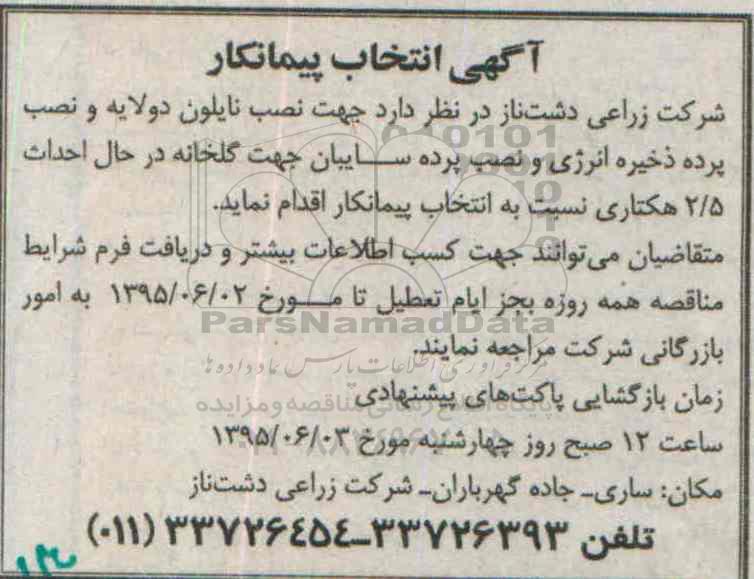 آگهی انتخاب پیمانکار
شرکت زراعی دشت‌ناز در نظر دارد جهت نصب نایلون دولایه و نصب
پرده ذخیره انرژی و نصب پرده ســایبان جهت گلخانه در حال احداث
۲/۵ هکتاری نسبت به انتخاب پیمانکار اقدام نماید.
متقاضیان می‌توانند جهت کسب اطلاعات بیشتر و دریافت فرم شرایط
مناقصه همه روزه بجز ایام تعطیل تا مــورخ ۱۳۹۵/۰۶/۰۲ به امور
ParsNamadData
بازرگانی شرکت مراجعه نمایند.
مرکز فرآوری اطلاعات پارس نماد داده ها
زمان بازگشایی پاکت‌های پیشنهادی
پایگاه اطلاع رسانی مناقصه و مزایده
ساعت ۱۲ صبح روز چهارشنبه مورخ ۱۳۹۵/۰۶/۰۳
مکان: ساری- جاده گهرباران- شرکت زراعی دشت‌ناز
تلفن ۳۳۷۲۶۳۹۳-۳۳۷۲۶۴۵۴ (۰۱۱)